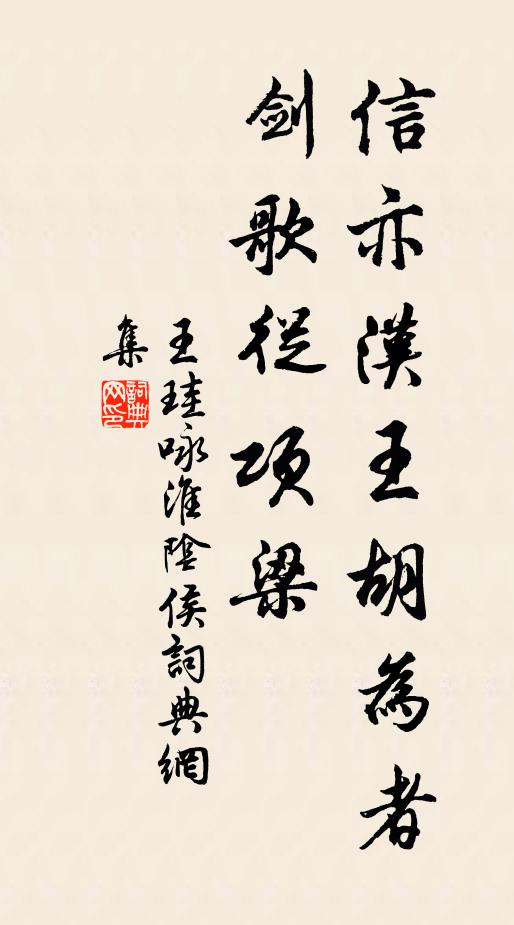 信亦漢王胡為者
劍歌從項梁
王珪咏淮陰侯詞典網
集
詞典網印